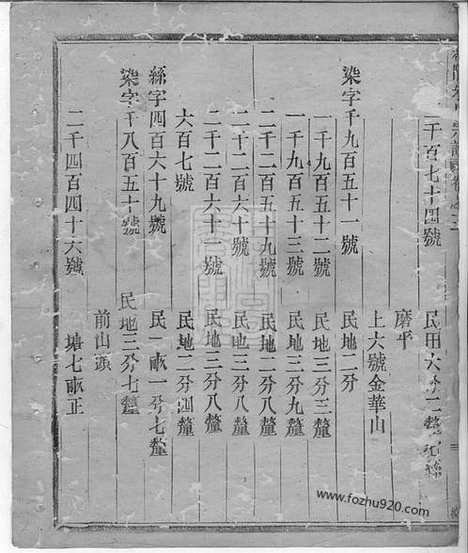 二千百七十四號　民田六分二釐
磨平
上六號金華山
染字千九百五十一號　民地二分
一千九百五十二號　民地三分三釐
一千九百五十三號　民地三分九釐
二千二百五十九號　民地一分八釐
二千二百六十號　民地三分八釐
二千二百六十一號　民地三分八釐
六百七號　民地二分四釐
絲字四百六十九號　民一畝一分七釐
染字千八百五十號　民地三分七釐
前山頭
二千四百四十六號　塘七畝正
www.fozhu920.com